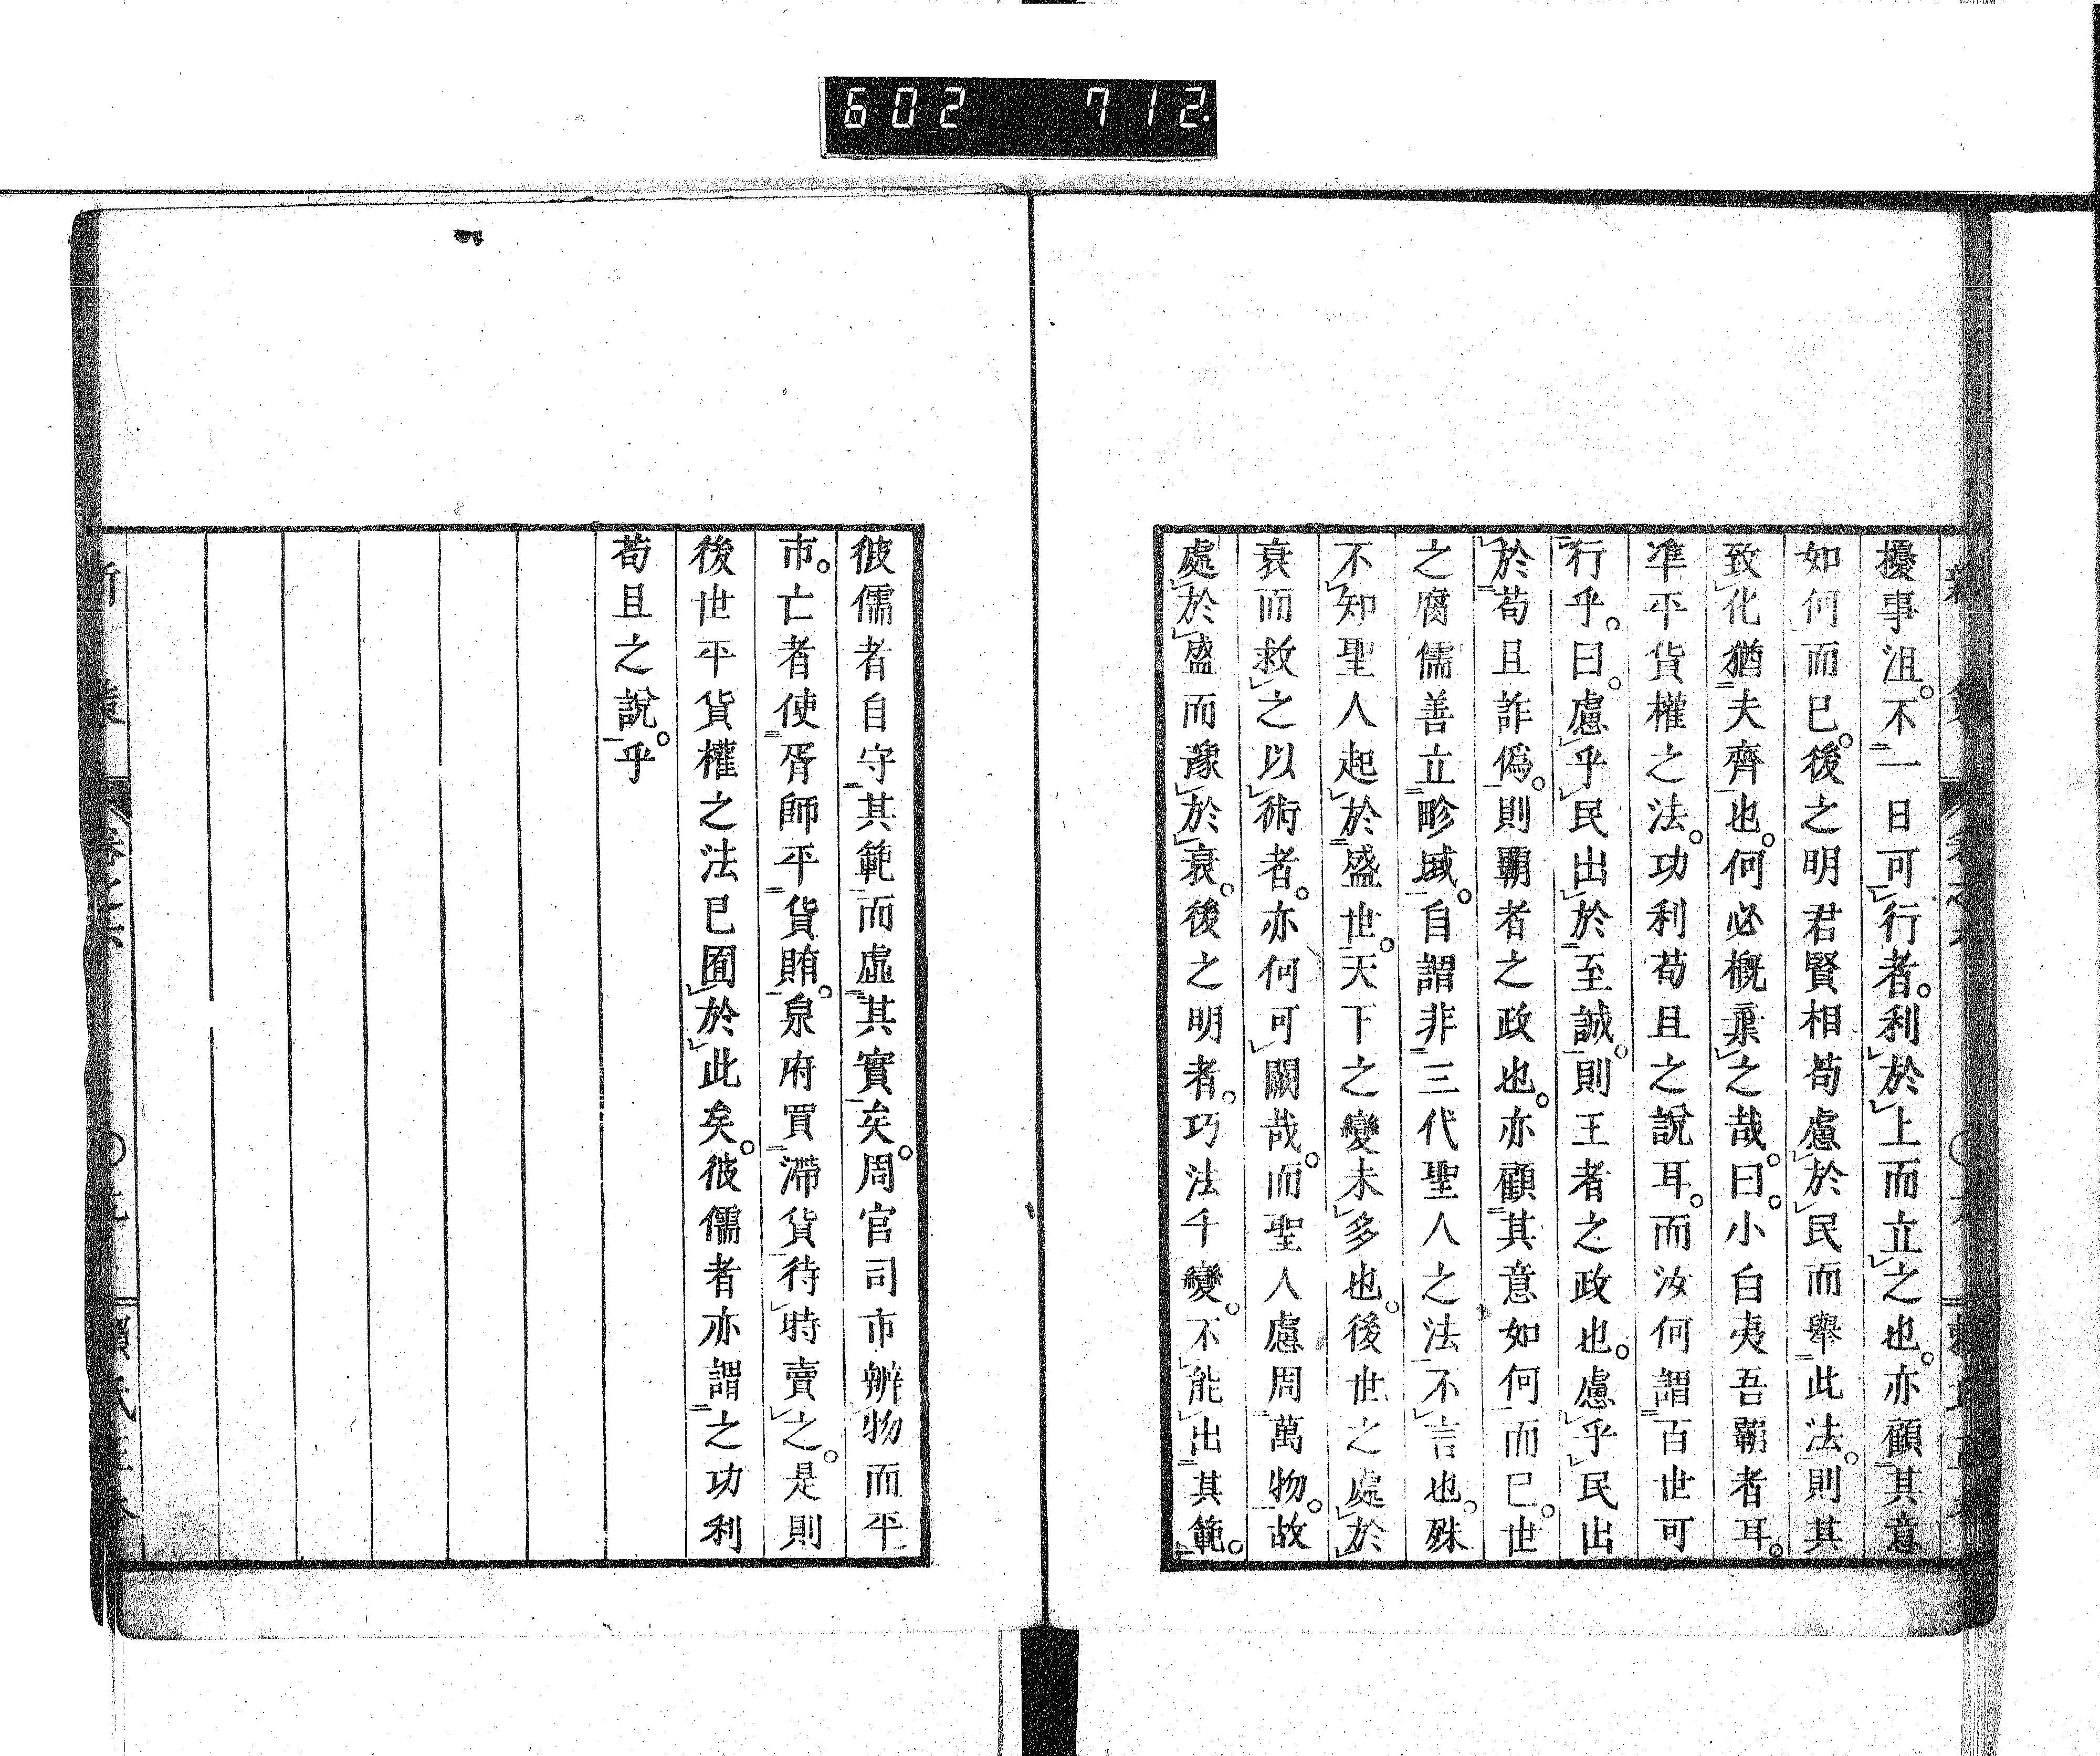 602 712
擾事沮。不一日可行者。利於上而立之也。亦顧其意
如何而已。後之明君賢相苟慮於民而舉此法。則其
致化猶夫齊也。何必概棄之哉。曰。小白夷吾覇者耳。
準平貨權之法。功利苟且之說耳。而汝何謂百世可
行乎。曰。慮乎民出於至誠。則王者之政也。慮乎民出
於苟且詐僞。則覇者之政也。亦顧其意如何而已。世
之腐儒善立畛域。自謂非三代聖人之法不言也。殊
不知聖人起於盛世。天下之變未多也。後世之處於
衰而救之以術者。亦何可闕哉。而聖人慮周萬物。故
處於盛而豫於衰。後之明者。巧法千變。不能出其範。
彼儒者自守其範而虛其實矣。周官司市辨物而平
市。亡者使胥師平貨賄。泉府買滯貨待時賣之。是則
後世平貨權之法已囿於此矣。彼儒者亦謂之功利
苟且之說乎